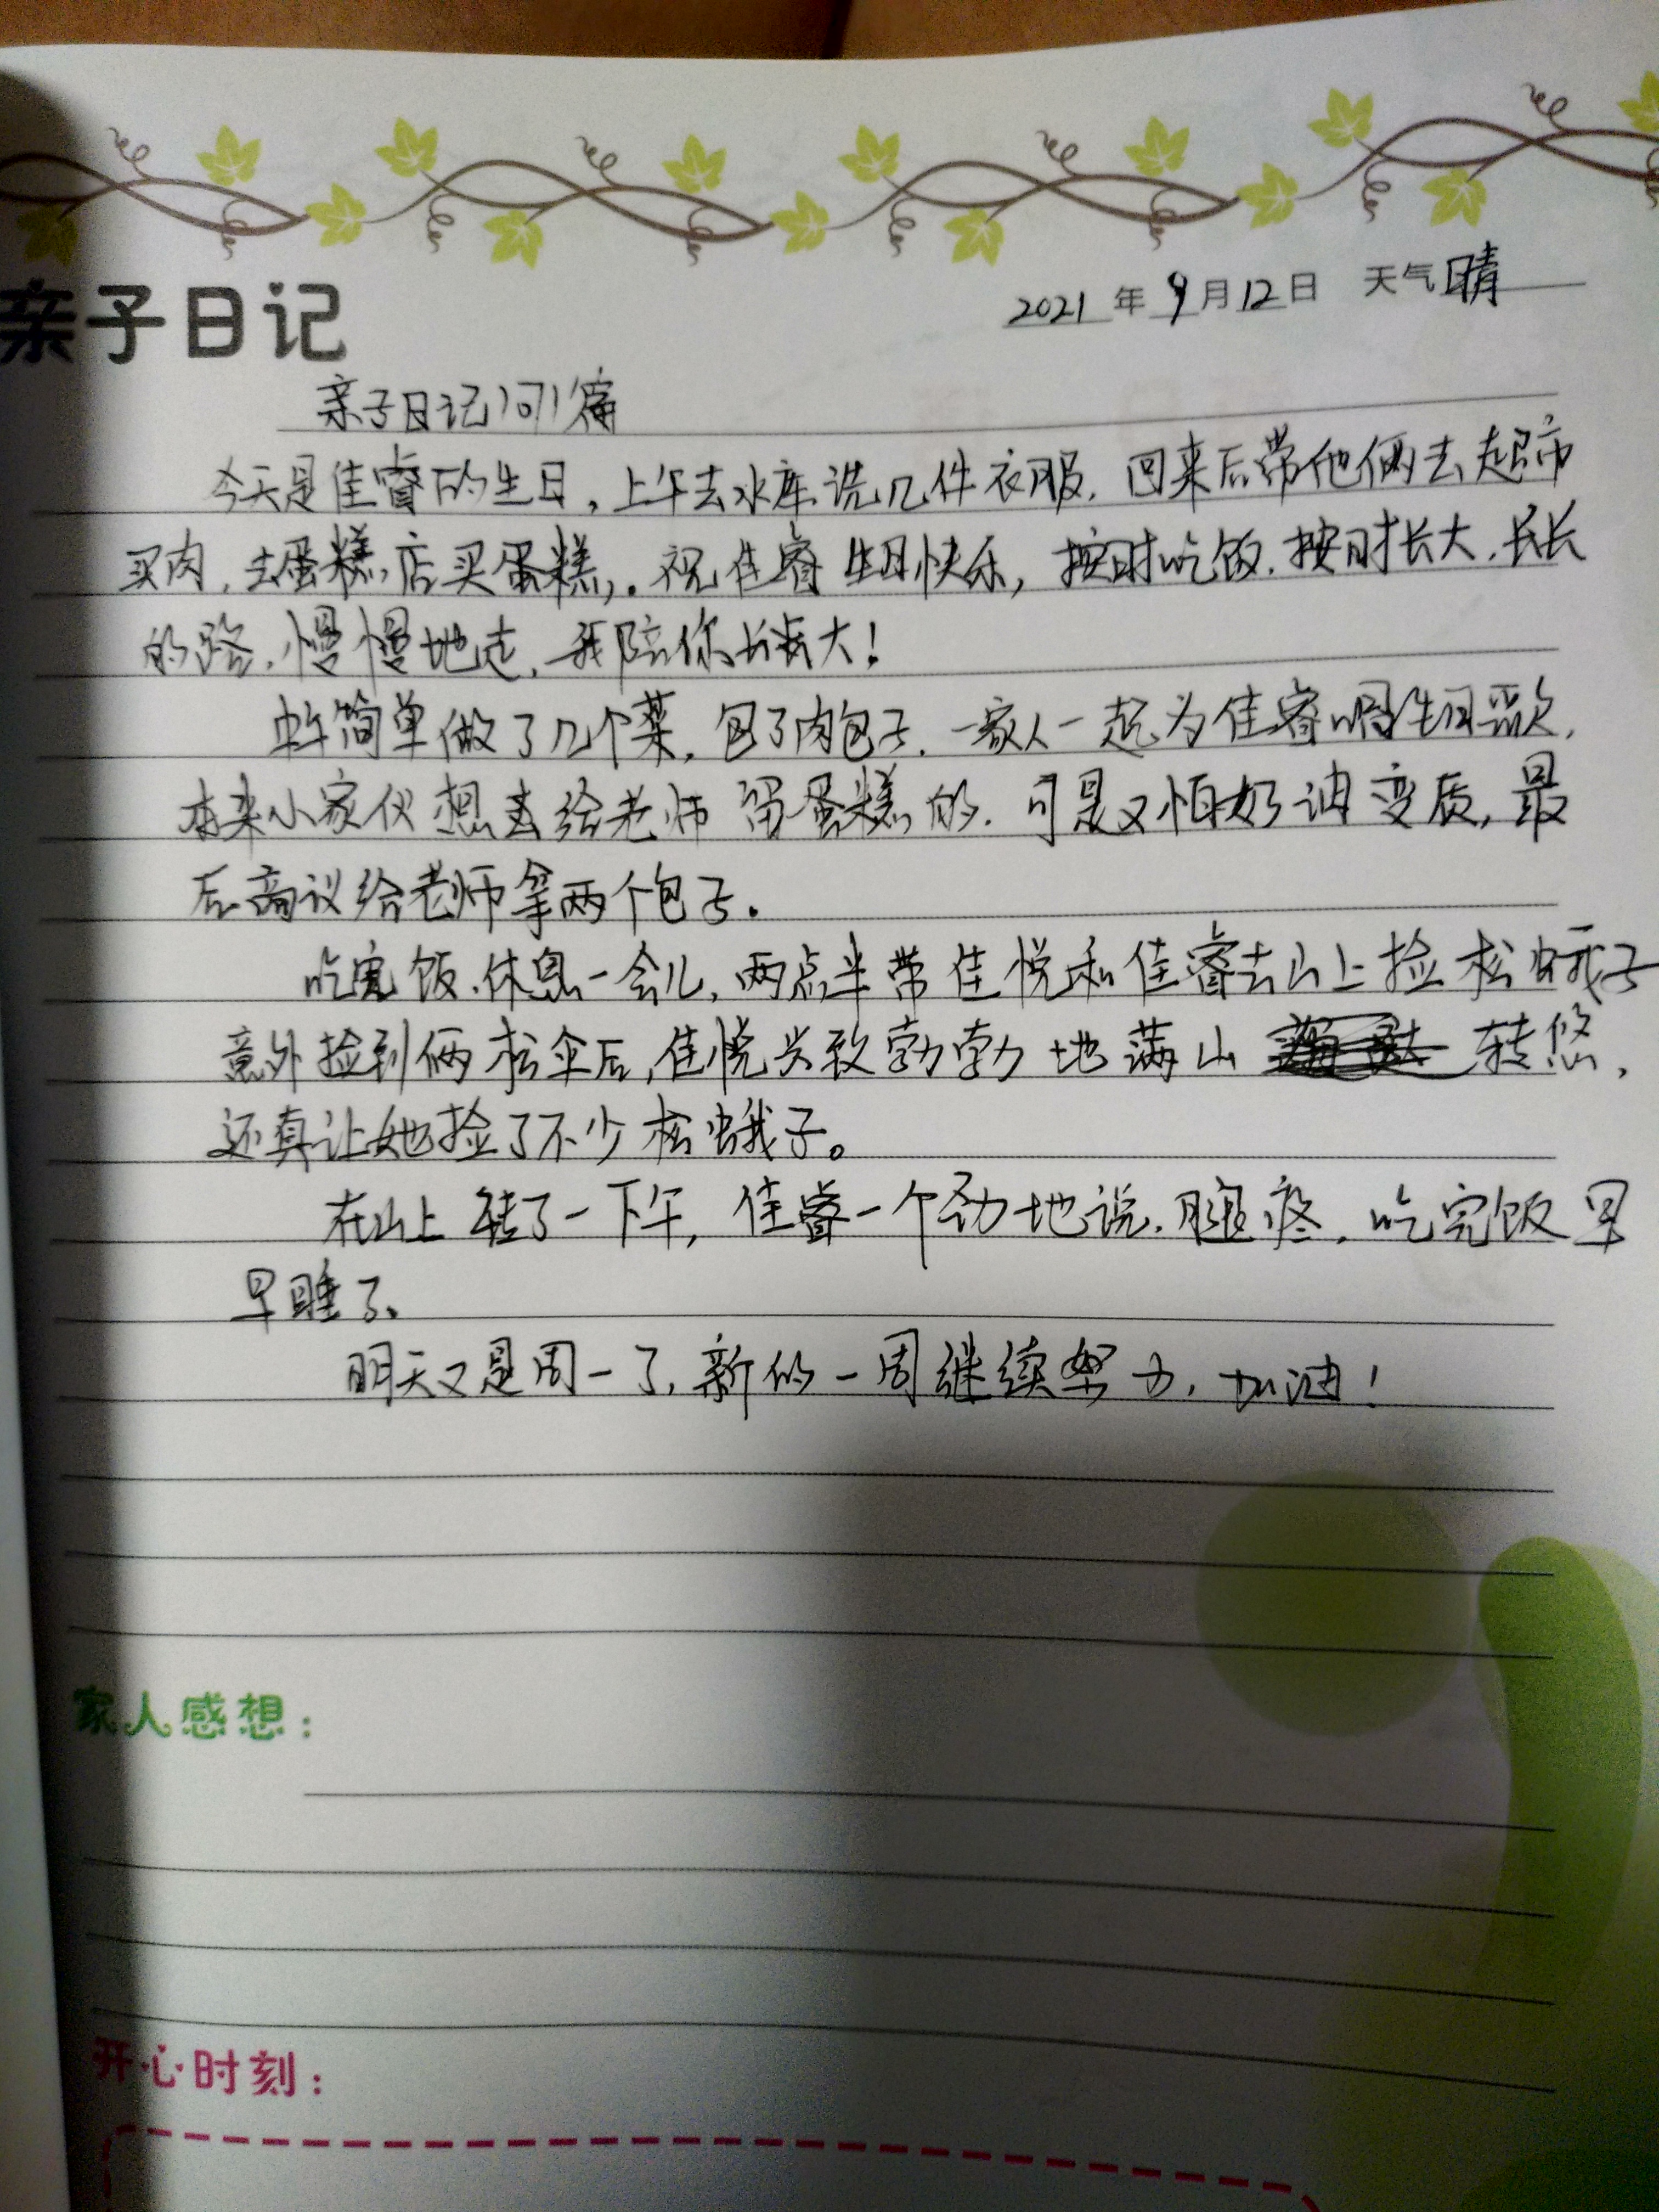 2021年9月12日 天气晴
亲子日记
亲子日记1071篇
今天是佳睿的生日,上午去水库洗几件衣服.回来后带他俩去超市
买肉,去蛋糕店买蛋糕,.祝佳睿生日快乐,按时吃饭.按时长大.长长
的路.慢慢地走,我陪你长大!
中午简单做了几个菜,包了肉包子.一家人一起为佳睿唱生日歌,
本来小家伙想去给老师留蛋糕的.可是又怕奶油变质,最
后商议给老师拿两个包子.
吃完饭.休息一会儿,两点半带佳悦和佳睿去山上捡松蛾子
意外捡到俩松伞后,佳悦兴致勃勃地满山转悠,
还真让她捡了不少松蛾子。
在山上转了一下午,佳睿一个劲地说.腿疼.吃完饭早
早睡了、
明天又是周一了,新的一周继续努力,加油!
家人感想:
开心时刻: